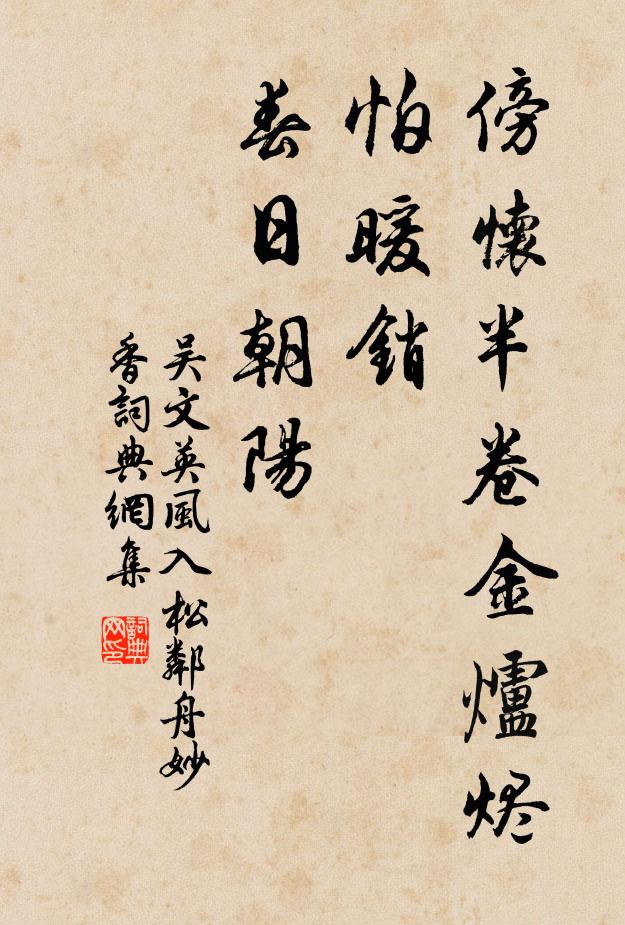 傍懷半卷金爐烬
怕暖銷
春日朝陽
吴文英風入松鄰舟妙
香詞典網集
詞典
网印